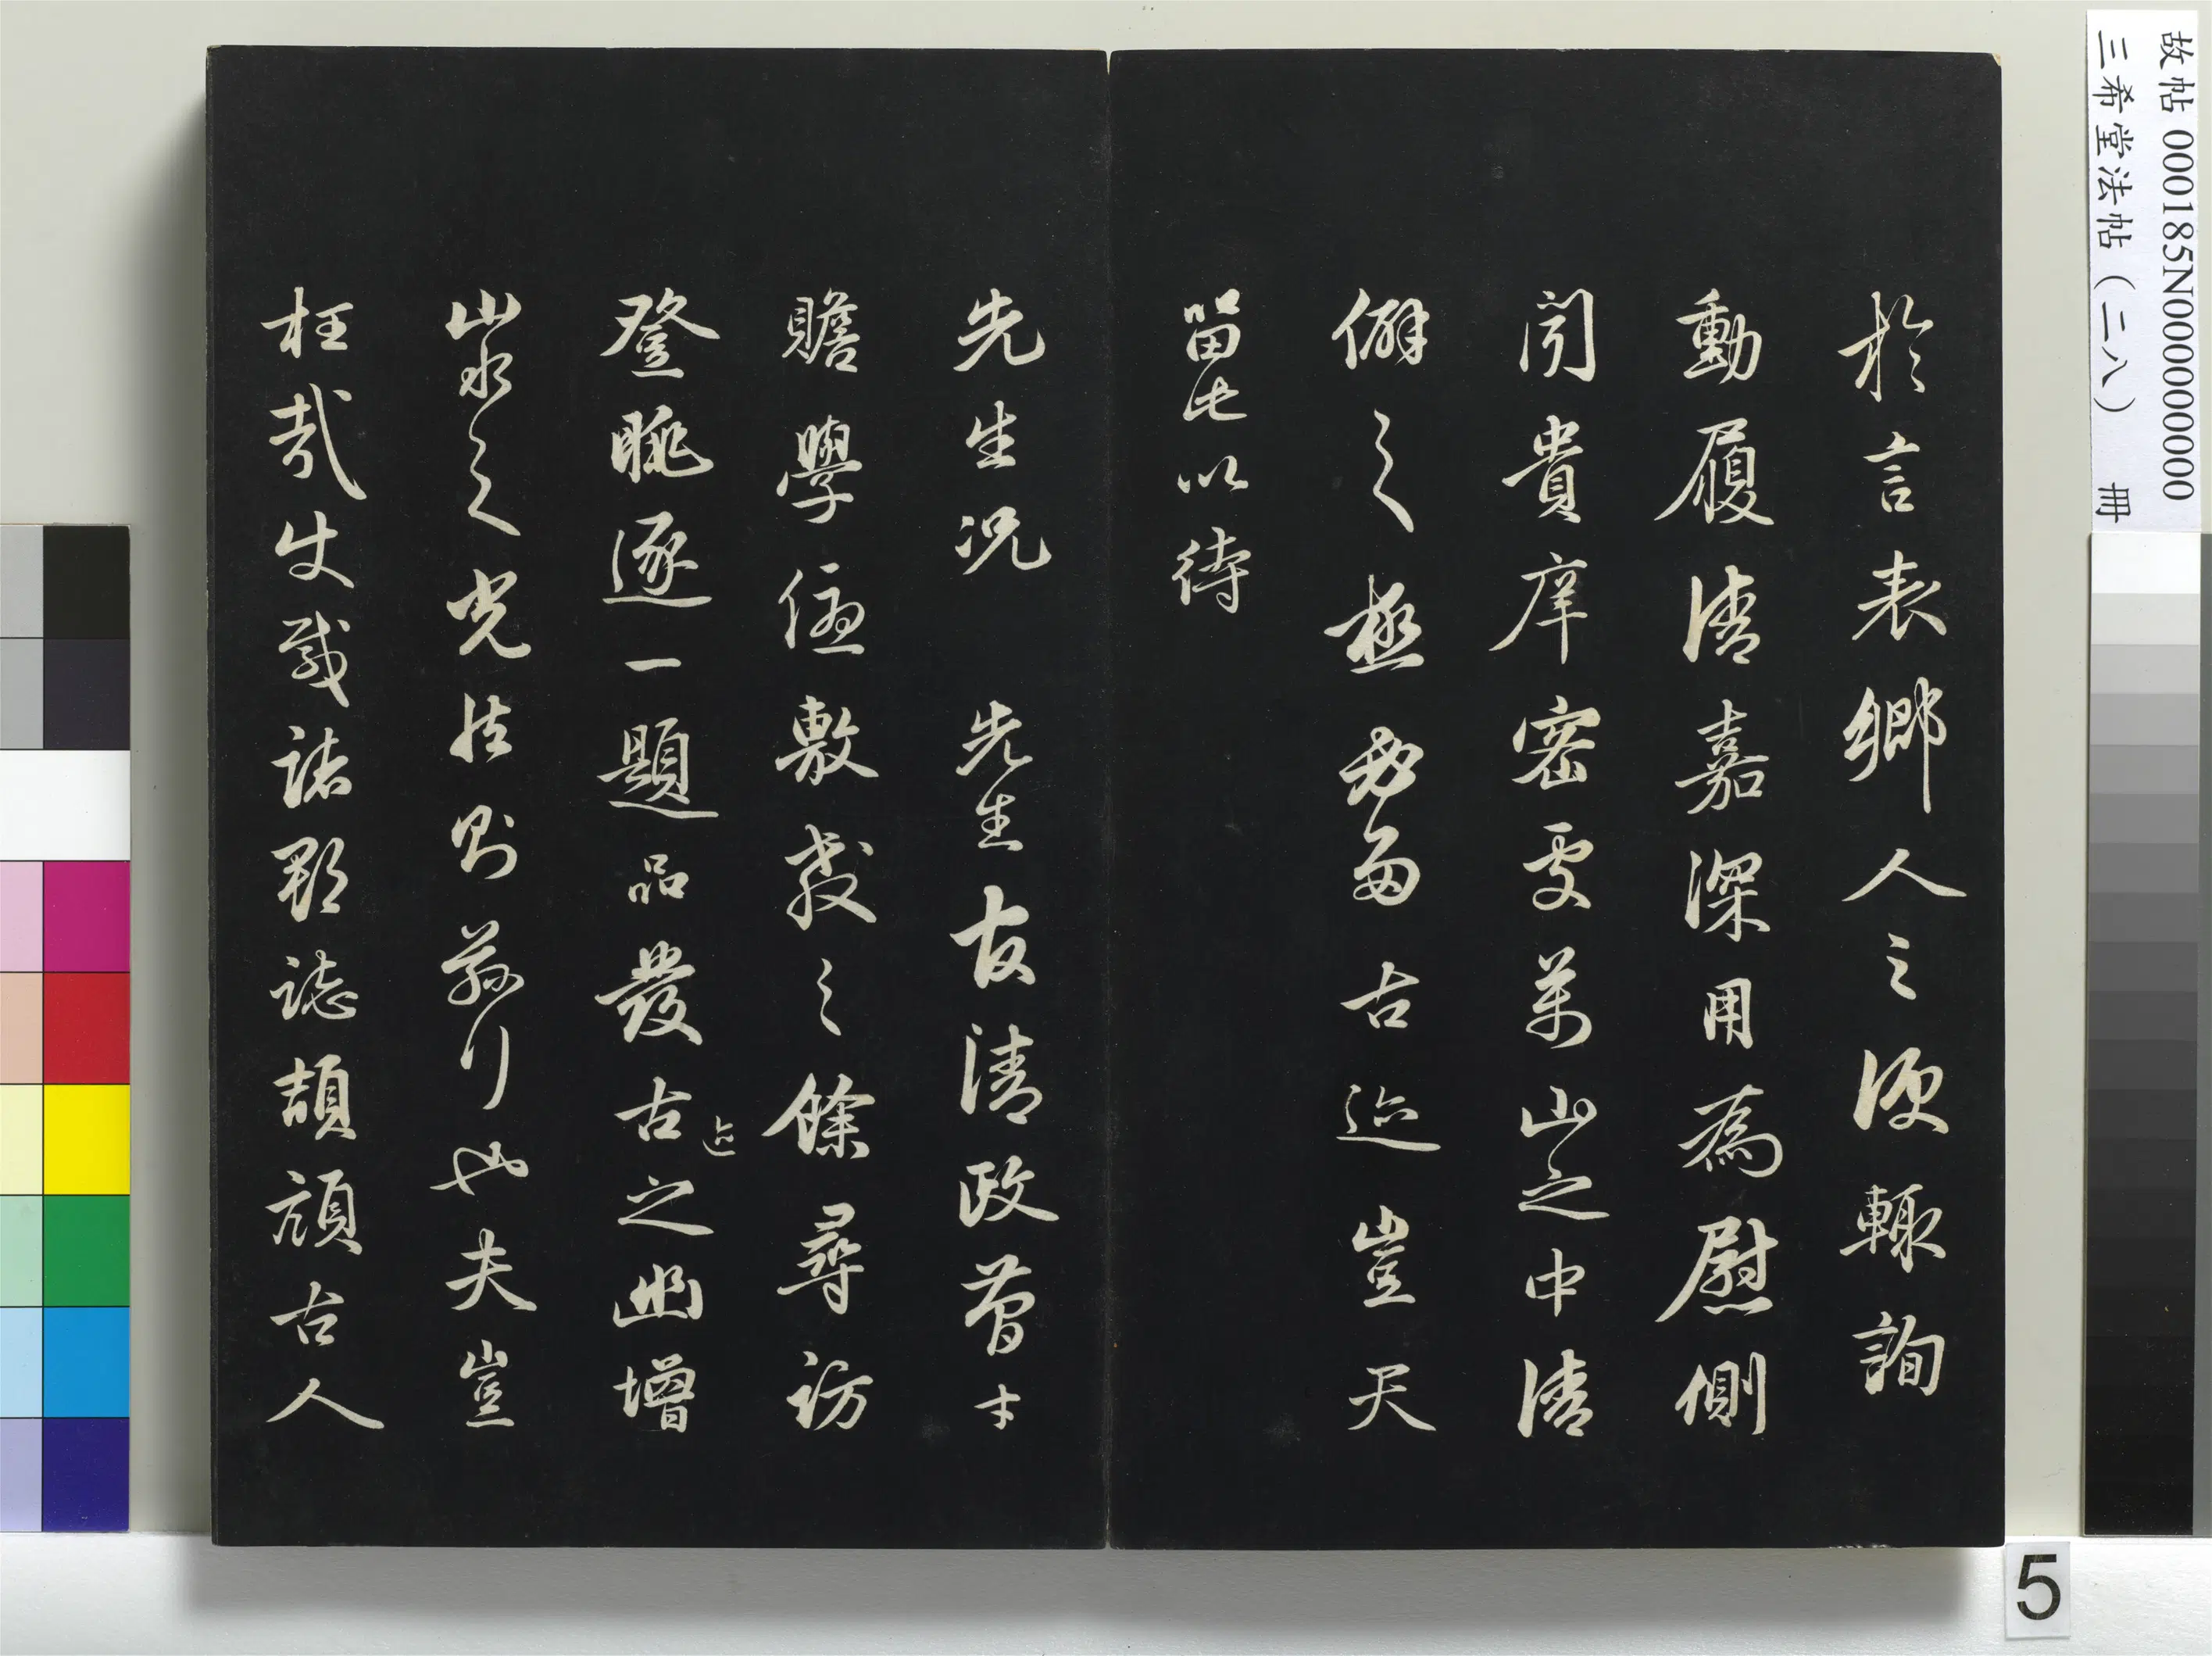 故帖 000185N000000000
三希堂法帖（二八） 冊
於言表鄉人之便輒詢
動履清嘉深用為慰側
聞貴庠密邇萬山之中清
僻之極必多古迹豈天
留此以待
先生況 先生友清政簡士
贍學優敷教之餘尋訪
登眺逐一題品發古迹之幽增
山水之光法則兼行也夫豈
枉哉史載諸郡誌頡頏古人
5